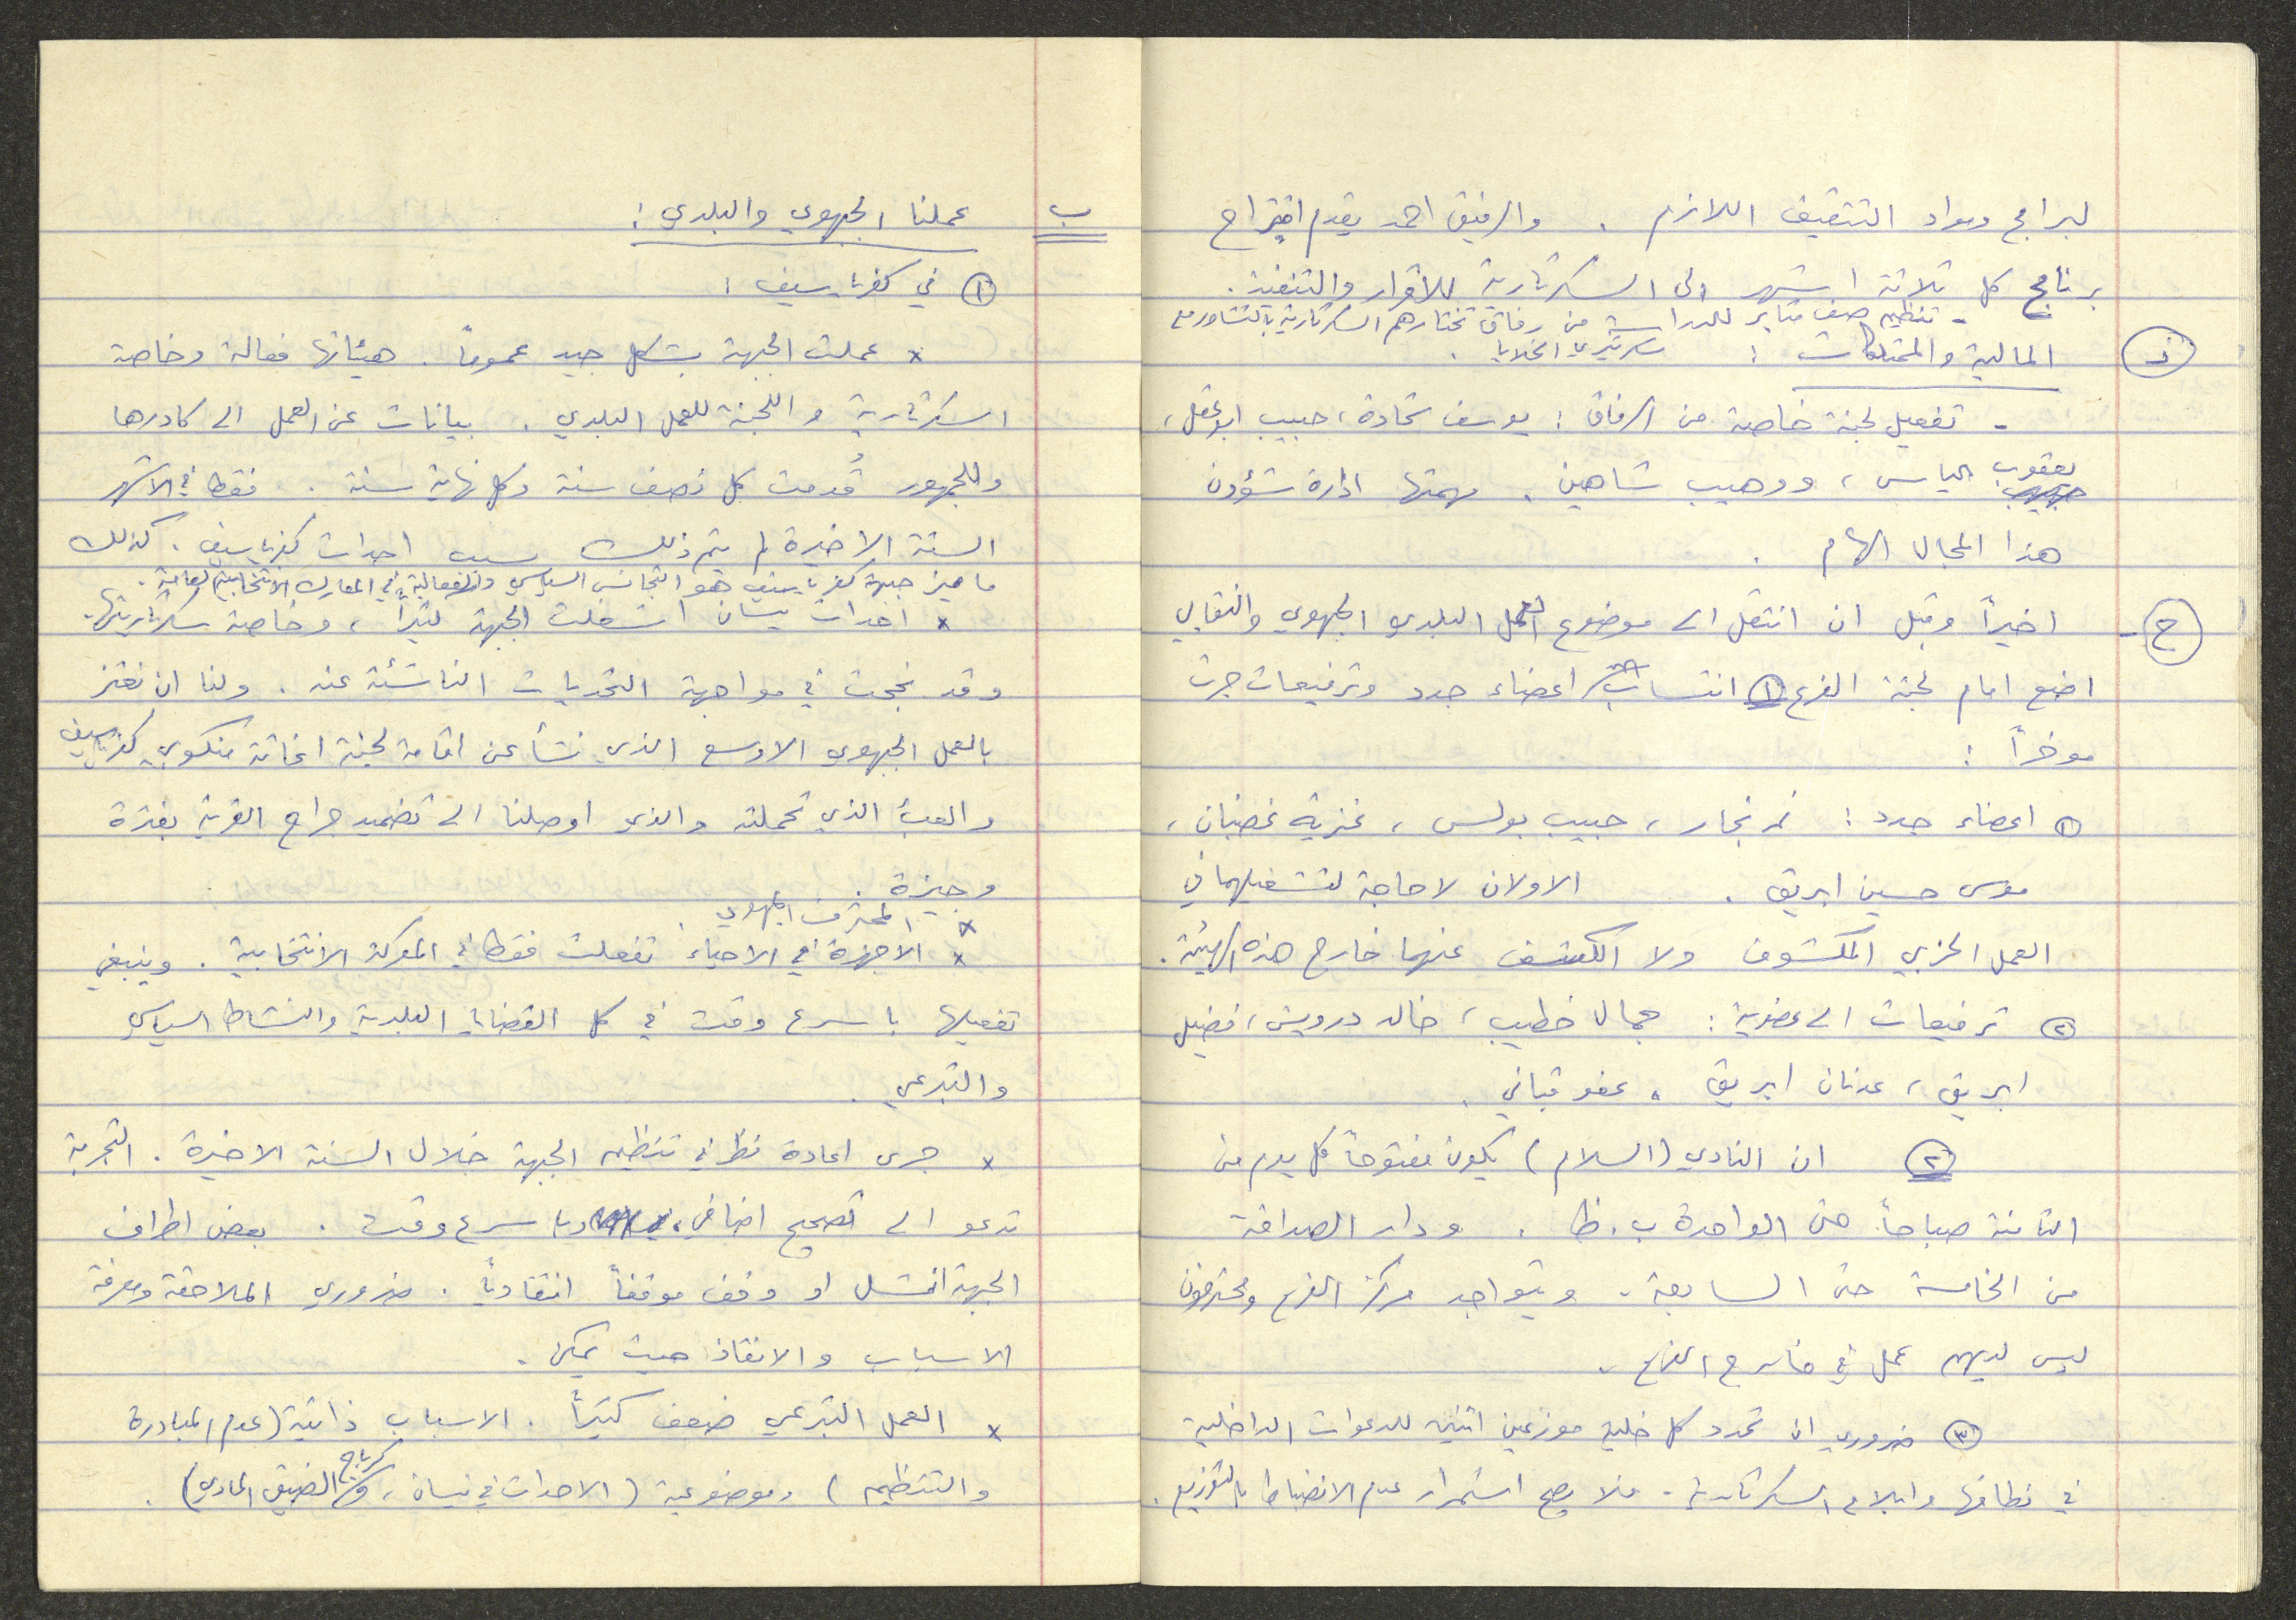 لبرامج ومواد التثقيف اللازم . والرفيق احمد يقدم اقتراح
برنامج كل ثلاثة اشهر الى السكرتارية للاقرار والتنفيذ .
- تنظيم صف مثابر للدراسة من رفاق تختارهم السكرتارية بالتشاور مع
سكرتيري الخلايا .
المالية والممتلكات :
- تفعيل لجنة خاصة من الرفاق : يوسف شحادة ، حبيب ابو عقل ،
يعقوب الياس ، ووهيب شاهين . مهمتها ادارة شؤون
هذا المجال الهام .
ح - اخيراً وقبل ان انتقل الى موضوع العمل البلدي الجبهوي والنقابي
اضع امام لجنة الفرع ① انتساب اعضاء جدد وترفيعات جرت
موخراً :
① اعضاء جدد : نمر نجار ، حبيب بولس ، غزية غضبان ،
موسى حسين ابريق . الاولان لا حاجة لتشغيلهما في
العمل الحزبي المكشوف ولا الكشف عنهما خارج هذه الهيئة .
② ترفيعات الى عضوية : جمال خطيب ، خالد درويش ، فضيل
ابريق ، عدنان ابريق ، عفو قباني .
② ان النادي (السلام) يكون مفتوحاً كل يوم من
الثامنة صباحاً حتى الواحدة ب . ظ . ودار الصداقة
من الخامسة حتى السابعة . ويتواجد مركز الفرع ومحترفون
ليس لديهم عمل في خارج الفرع .
③ ضروري ان تحدد كل خلية موزعين اثنين للدعوات الداخلية
في نطاقها وابلاغ السكرتارية . فلا يصح استمرار عدم الانضباط بالتوزيع .
ب عملنا الجبهوي والبلدي :
① في كفرياسيف :
x عملت الجبهة بشكل جيد عموماً . هيئاتها فعالة وخاصة
السكرتارية واللجنة للعمل البلدي . بيانات عن العمل الى كادرها
وللجمهور قُدمت كل نصف سنة وكل نهاية سنة . فقط في الاشهر
الستة الاخيرة لم يتم ذلك بسبب احداث كفرياسيف . كذلك
ما ميز جبهة كفرياسيف هو التجانس السياسي والفعالية في المعارك الانتخابية العامة .
x احداث نيسان اشغلت الجبهة كثيراً ، وخاصة سكرتاريتها .
وقد نجحت في مواجهة التحديات الناشئة عنه . ولنا ان نعتز
بالعمل الجبهوي الاوسع الذي نشأ عن اقامة لجنة اغاثة منكوبي كفرياسيف
والعبء الذي تحملته والذي اوصلنا الى تضميد جراح القرية بفترة
وجيزة .
x المحترف الجبهوي .
x الاجهزة في الاحياء تفعلت فقط في المعركة الانتخابية . وينبغي
تفعيلها باسرع وقت في كل القضايا البلدية والنشاط السياسي
والتبرعي .
x جرى اعادة نظر في تنظيم الجبهة خلال السنة الاخيرة . التجربة
تدعو الى تصحيح اضافي ، وباسرع وقت . بعض اطراف
الجبهة انشل او وقف موقفاً انتقادياً . ضروري الملاحقة ومعرفة
الاسباب والانقاذ حيث يمكن .
x العمل التبرعي ضعف كثيراً . الاسباب ذاتية (عدم المبادرة
والتنظيم) وموضوعية (الاحداث في نيسان ، الضيق المادي) .